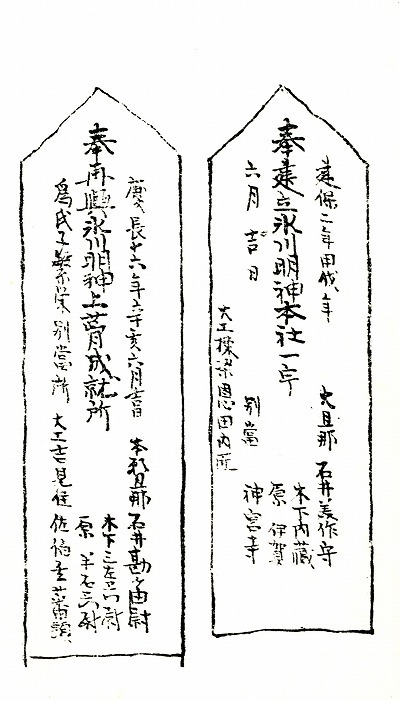 建保二年甲戌年
大旦那 石井美作守
木下内蔵
原 伊賀
奉建立氷川明神本社一宇
六月吉日
別當 神宮寺
大工棟梁恩田内匠
慶長十六年辛亥六月吉日
本願旦那 石井勘
木下三左衛門尉
原 半右衛門尉
奉再興氷川明神上葺成就所
為氏子繁栄別當所
大工吉見住佐